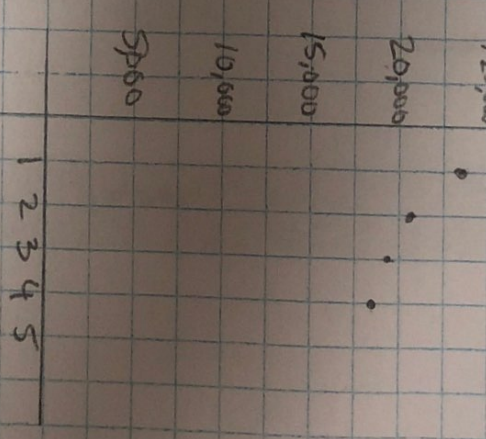 20,000
15,000
10,000
5,000
1 2 3 4 5